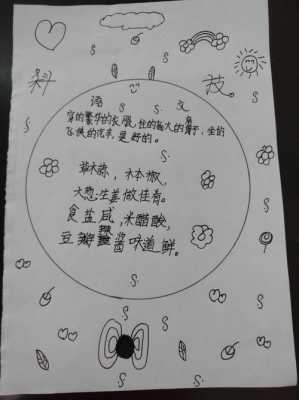 科 技
语 文
穿的繁华的衣服,住的高大的房子,坐的
飞快的汽车,是野的。
草木棕,木本椒,
大葱生姜做佳肴。
食盐咸,米醋酸,
豆瓣酱味道鲜。